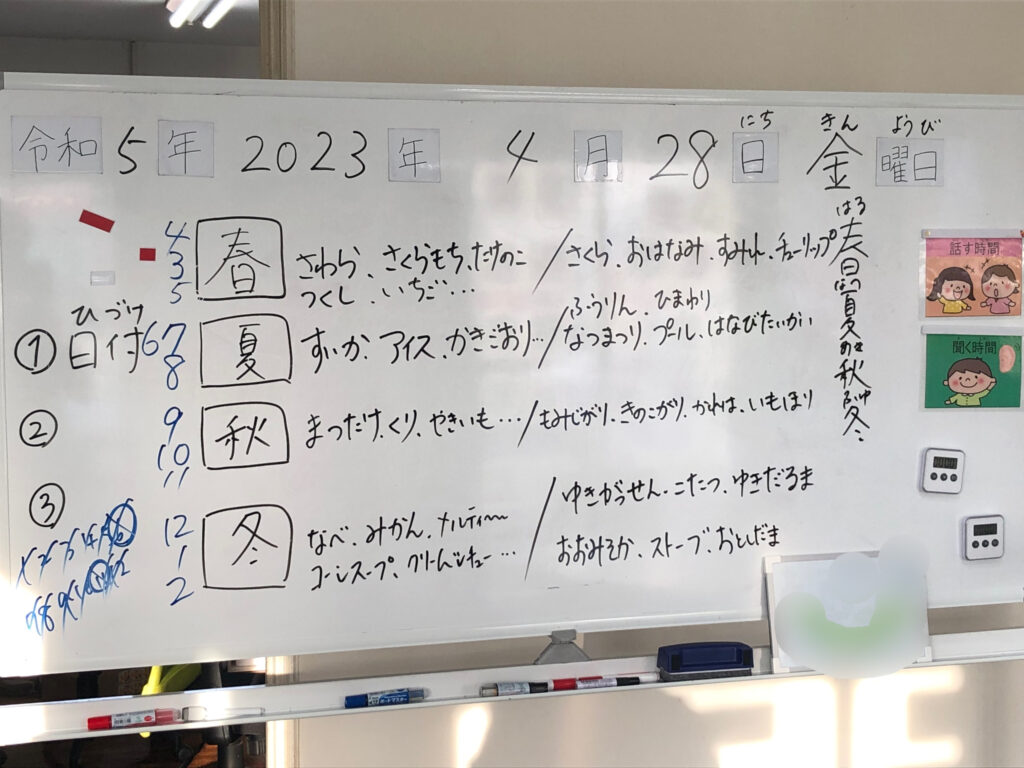 にち きん ようび
令和 5 年 2023 年 4 月 28 日 金 曜日
はる
春 夏 秋 冬
話す時間
聞く時間
ひづけ
① 日付
②
③
4
3
5
春 さわら、さくらもち、たけのこ / さくら、おはなみ、すみれ、チューリップ
つくし、いちご…
6 7
8
夏 すいか、アイス、かきごおり… / ふうりん、ひまわり
なつまつり、プール、はなびたいかい
9
10
11
秋 まつだけ、くり、やきいも… / もみじがり、きのこがり、かれは、いもほり
12
1
2
冬 なべ、みかん、メルティー / ゆきがっせん、こたつ、ゆきだるま
コーンスープ、クリームシチュー… おおみそか、ストーブ、おとしだま